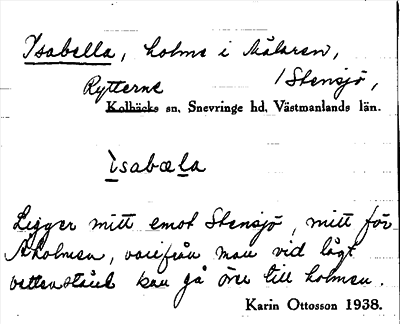 Isabella, holme i Mälaren,
Rytterne /Stensjö,
Kolbäcks sn, Snevringe hd, Västmanlands län.
ìsabæla
Ligger mitt emot Stensjö, mitt för
Aholmen, varifrån man vid lågt
vattenstånd kan gå över till holmen.
Karin Ottosson 1938.